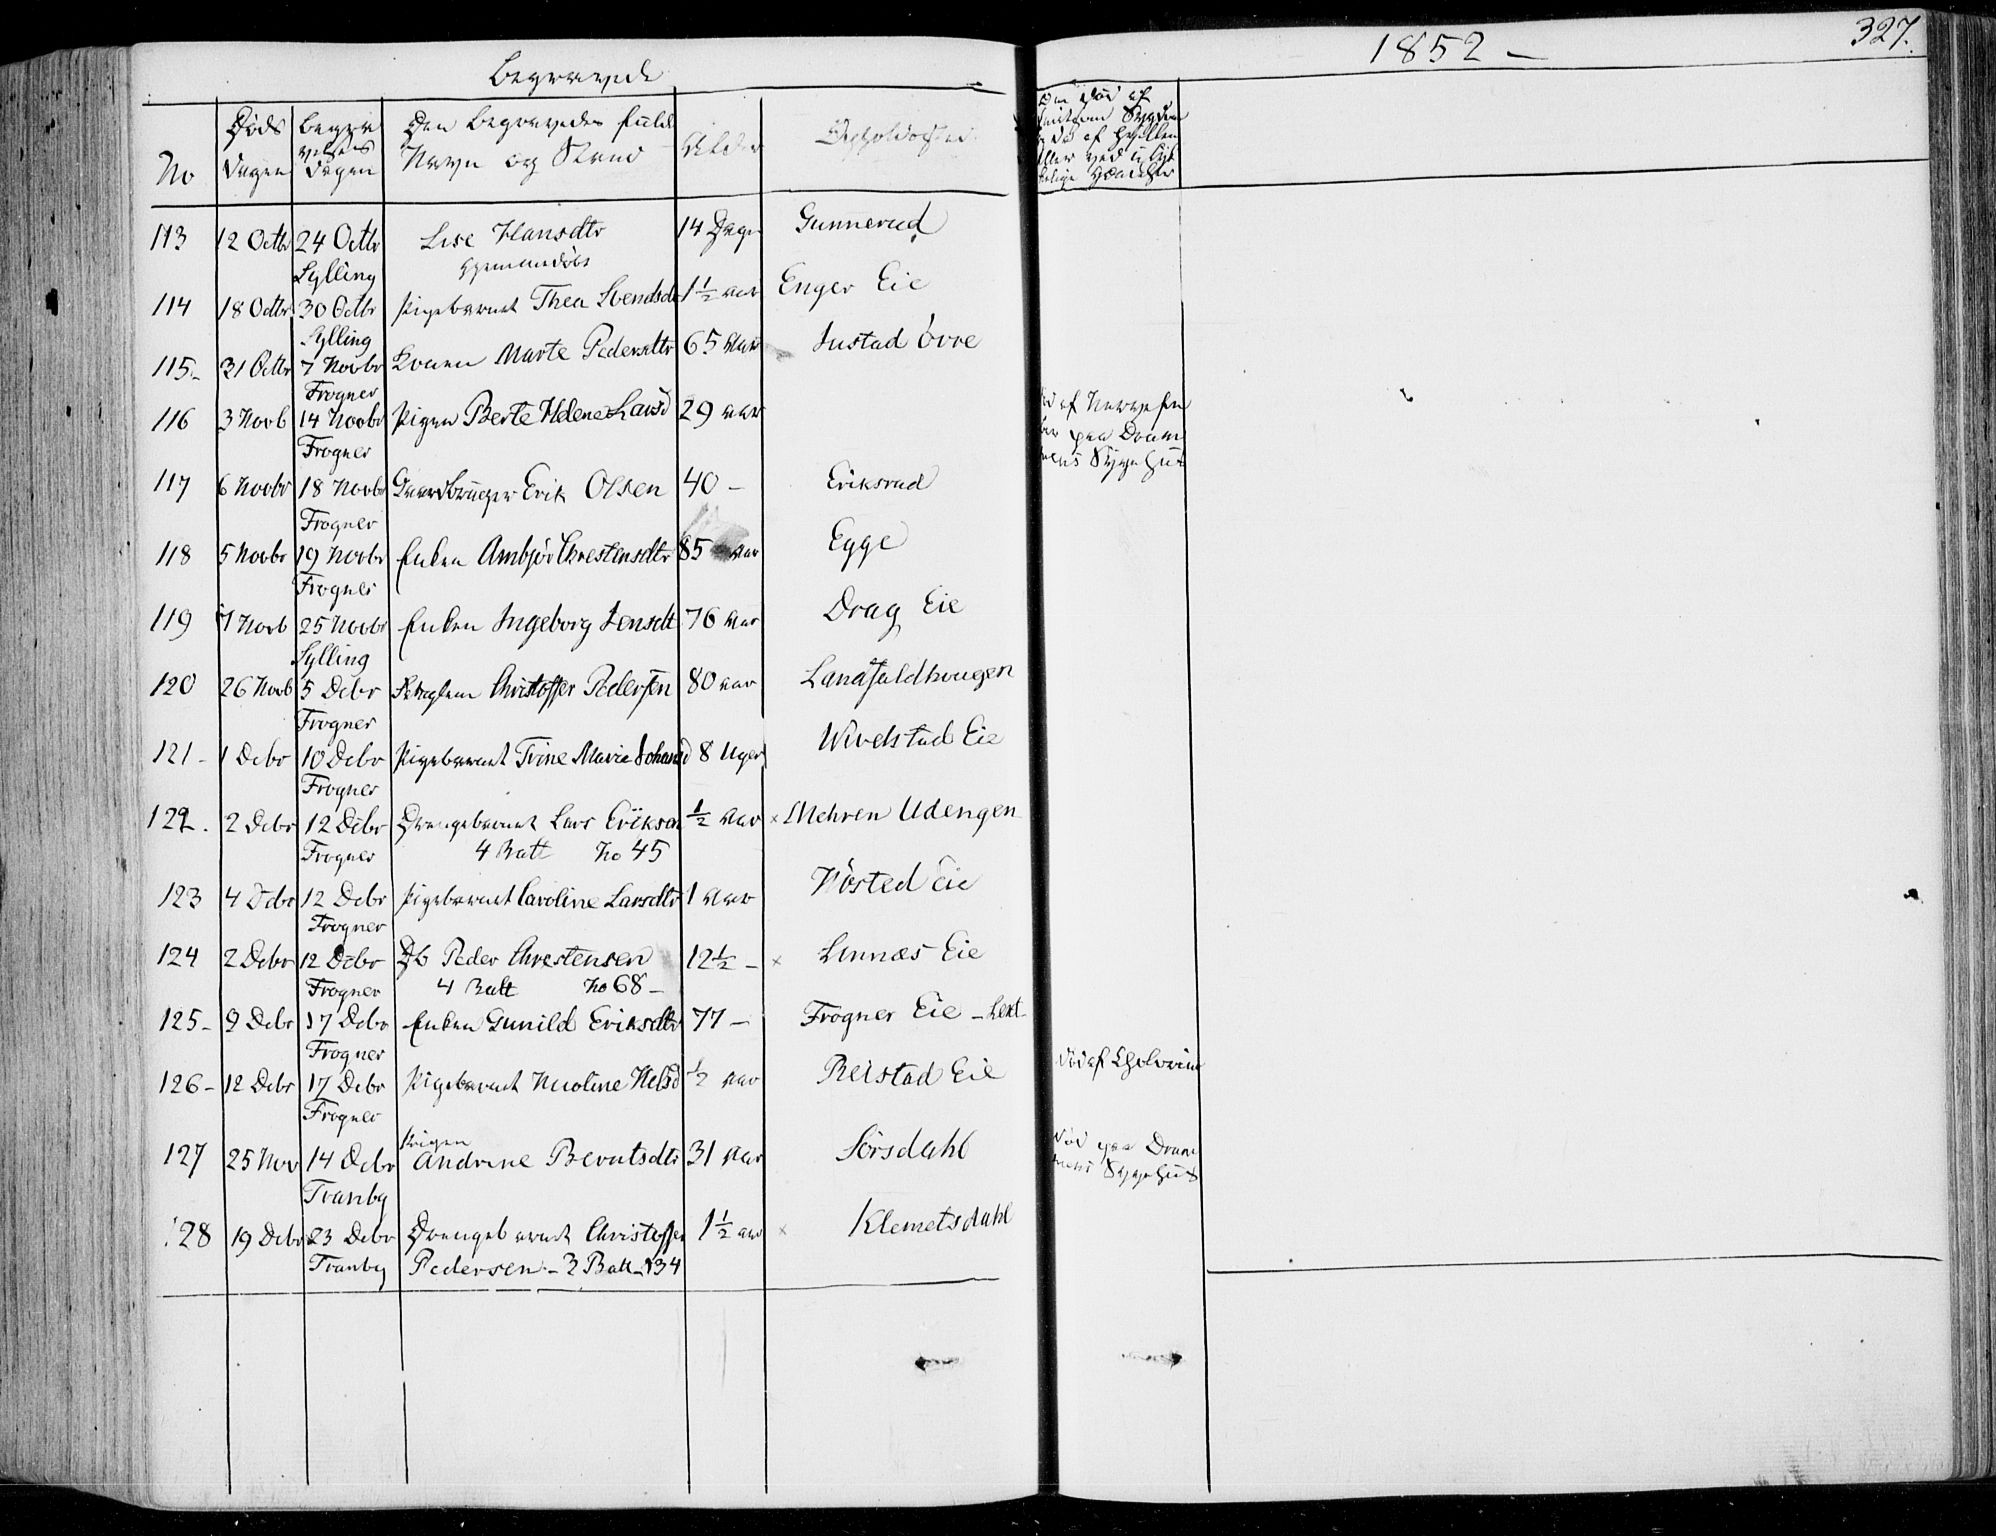 Begravede
1852 —
327.
No
Døds Dagen
Begravelses Dagen
Den Begravedes fulde Navn og Stand
Alder
Opholdssted
113 12 Octbr 24 Octbr Lise Hansdtr 14 Dage Gunnerud
Sylling hjemmedøbt
114 18 Octbr 30 Octbr Pigebarnet Thea Svendsd 1½ aar Enger Eie
Sylling
115 31 Octbr 7 Novbr Konen Marte Pedersdtr 65 Aar Justad Øvre
Frogner
116 3 Novb 14 Novbr Pigen Berte Helene Larsd 29 aar
død af Nervefeber paa Drammens Sygehus
Frogner
117 6 Novbr 18 Novbr Gaardbruger Erik Olsen 40 — Eriksrud
Frogner
118 5 Novbr 19 Novbr Enken Ambjør Chrestensdtr 85 aar Egge
Frogner
119 7 Novb 25 Novbr Enken Ingeborg Jensdt 76 aar Drag Eie
Sylling
120 26 Novb 5 Debr Christoffer Pedersen 80 aar Landfaldhougen
Frogner
121 - 1 Debr 10 Debr Pigebarnet Trine Marie Johansd 8 Uger Wivelstad Eie
Frogner
122. 2 Debr 12 Debr Drengebarnet Lars Eriksen ½ aar × Mehren Udengen
Frogner 4 Batt No 45
123 4 Debr 12 Debr Pigebarnet Caroline Larsdtr 1 Aar Høsted Eie
Frogner
124 2 Debr 12 Debr Db Peder Chrestensen 12½ — × Linnæs Eie
Frogner 4 Batt No 68 —
125 - 9 Debr 17 Debr Enken Gunild Eriksdtr 77 — Frogner Eie
Frogner
126 - 12 Debr 17 Debr Pigebarnet Nicoline Nelsd ½ aar Reistad Eie
død af Cholerine
Frogner
Pigen
127 25 Nov 14 Debr Andrine Berntsdtr 31 Aar Sørsdahl
død paa Drammens Sygehus
Tranby
128 19 Debr 23 Debr Drengebarnet Christoffer 1½ aar × Klemetsdahl
Tranby Pedersen. - 3 Batt - 134